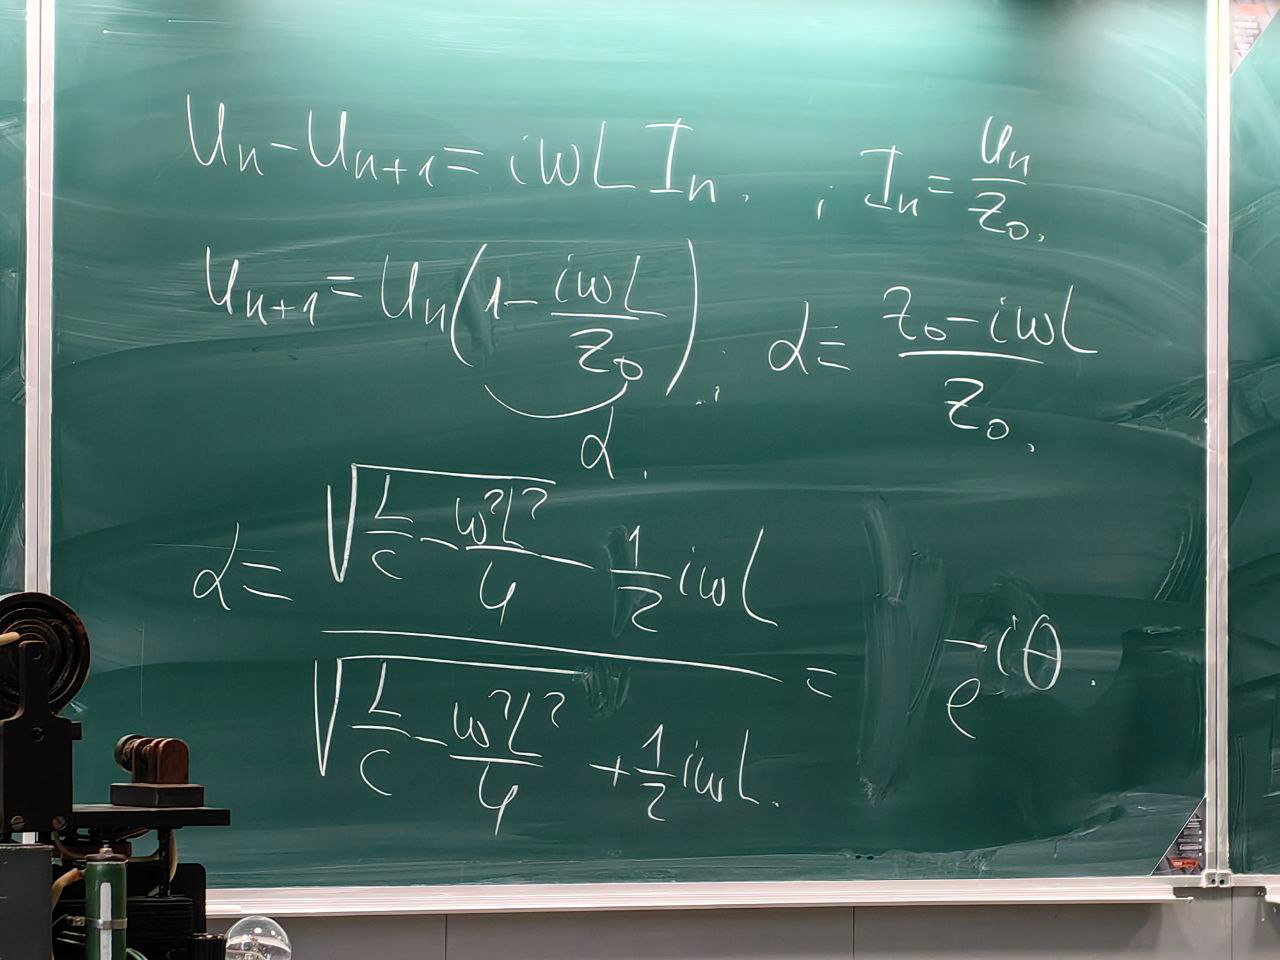 Un - Un+1 = iωL In. ; In = Un/Z0.
Un+1 = Un(1 - iωL/Z0). ; α = (Z0 - iωL)/Z0.
α.
α = (√(L/C - ω²L²/4) - 1/2 iωL)/(√(L/C - ω²L²/4) + 1/2 iωL.) = e^-iθ.